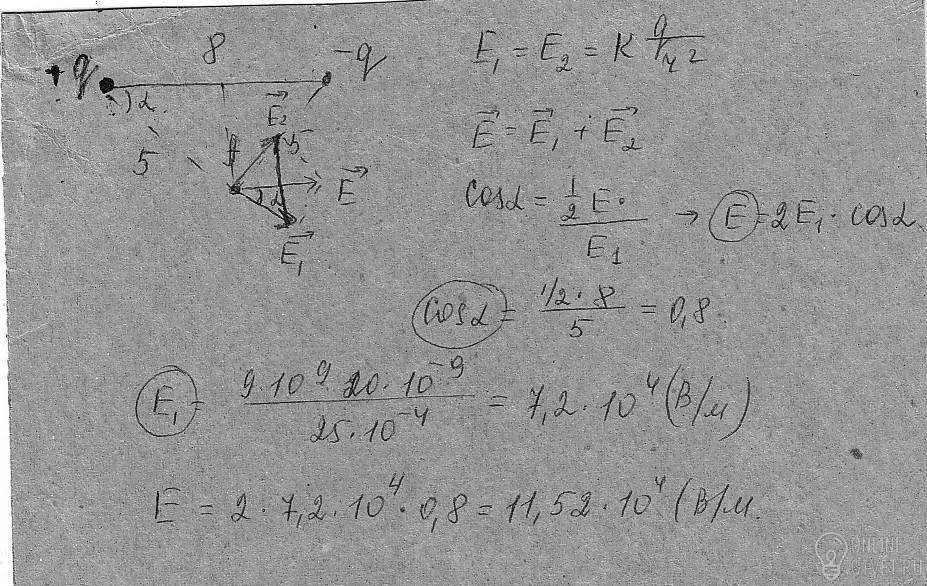 8
+q
-q
α
5
5
E⃗₂
E⃗
α
E⃗₁
E₁ = E₂ = К q/r²
E⃗ = E⃗₁ + E⃗₂
Cosα = ½ E · / E₁ → E = 2E₁ · cosα
Cosα = 1/2 · 8 / 5 = 0,8
E₁ = 9·10⁹ 20·10⁻⁹ / 25·10⁻⁴ = 7,2 · 10⁴ (В/м)
E = 2 · 7,2 · 10⁴ · 0,8 = 11,52 · 10⁴ (В/м
ONLINE
OTVET.RU